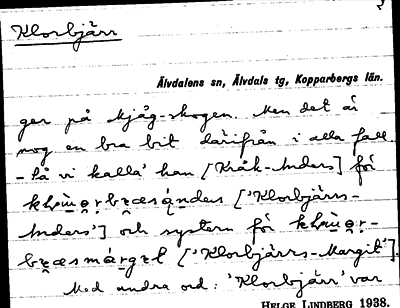 Klorbjärr
Älvdalens sn, Älvdals tg, Kopparbergs län.
ger på Mjåg-skogen. Men det är
nog en bra bit därifrån i alla fall
- så vi kalla' han [Kråk-Anders] för
['Klorbjärrs-
Anders'] och systern för
['Klorbjärrs-Margit'].
Med andra ord: 'Klorbjärr' var
HELGE LINDBERG 1938.